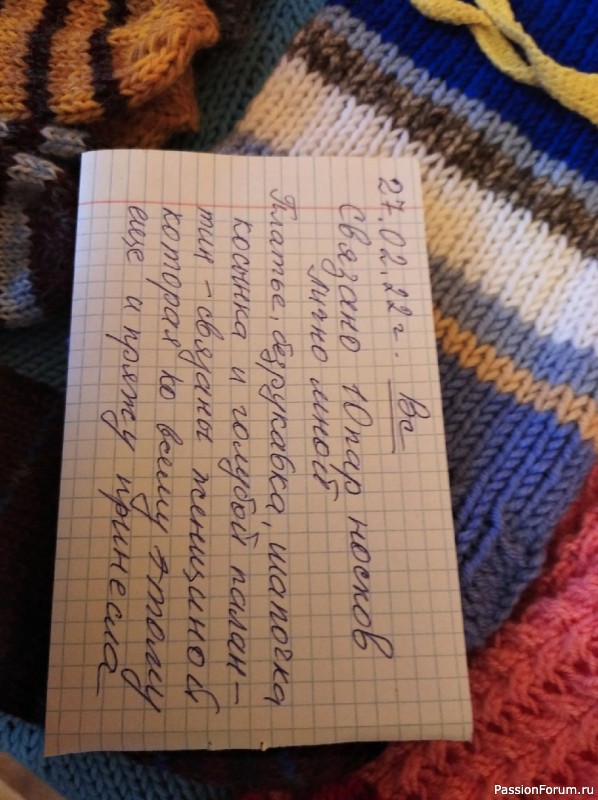 27.02.22г. Вс
Связано 10 пар носков
лично мной
Платье, безрукавка, шапочка
косынка и голубой палан-
тин - связаны женщиной
которая ко всему этому
еще и пряжу принесла
PassionForum.ru